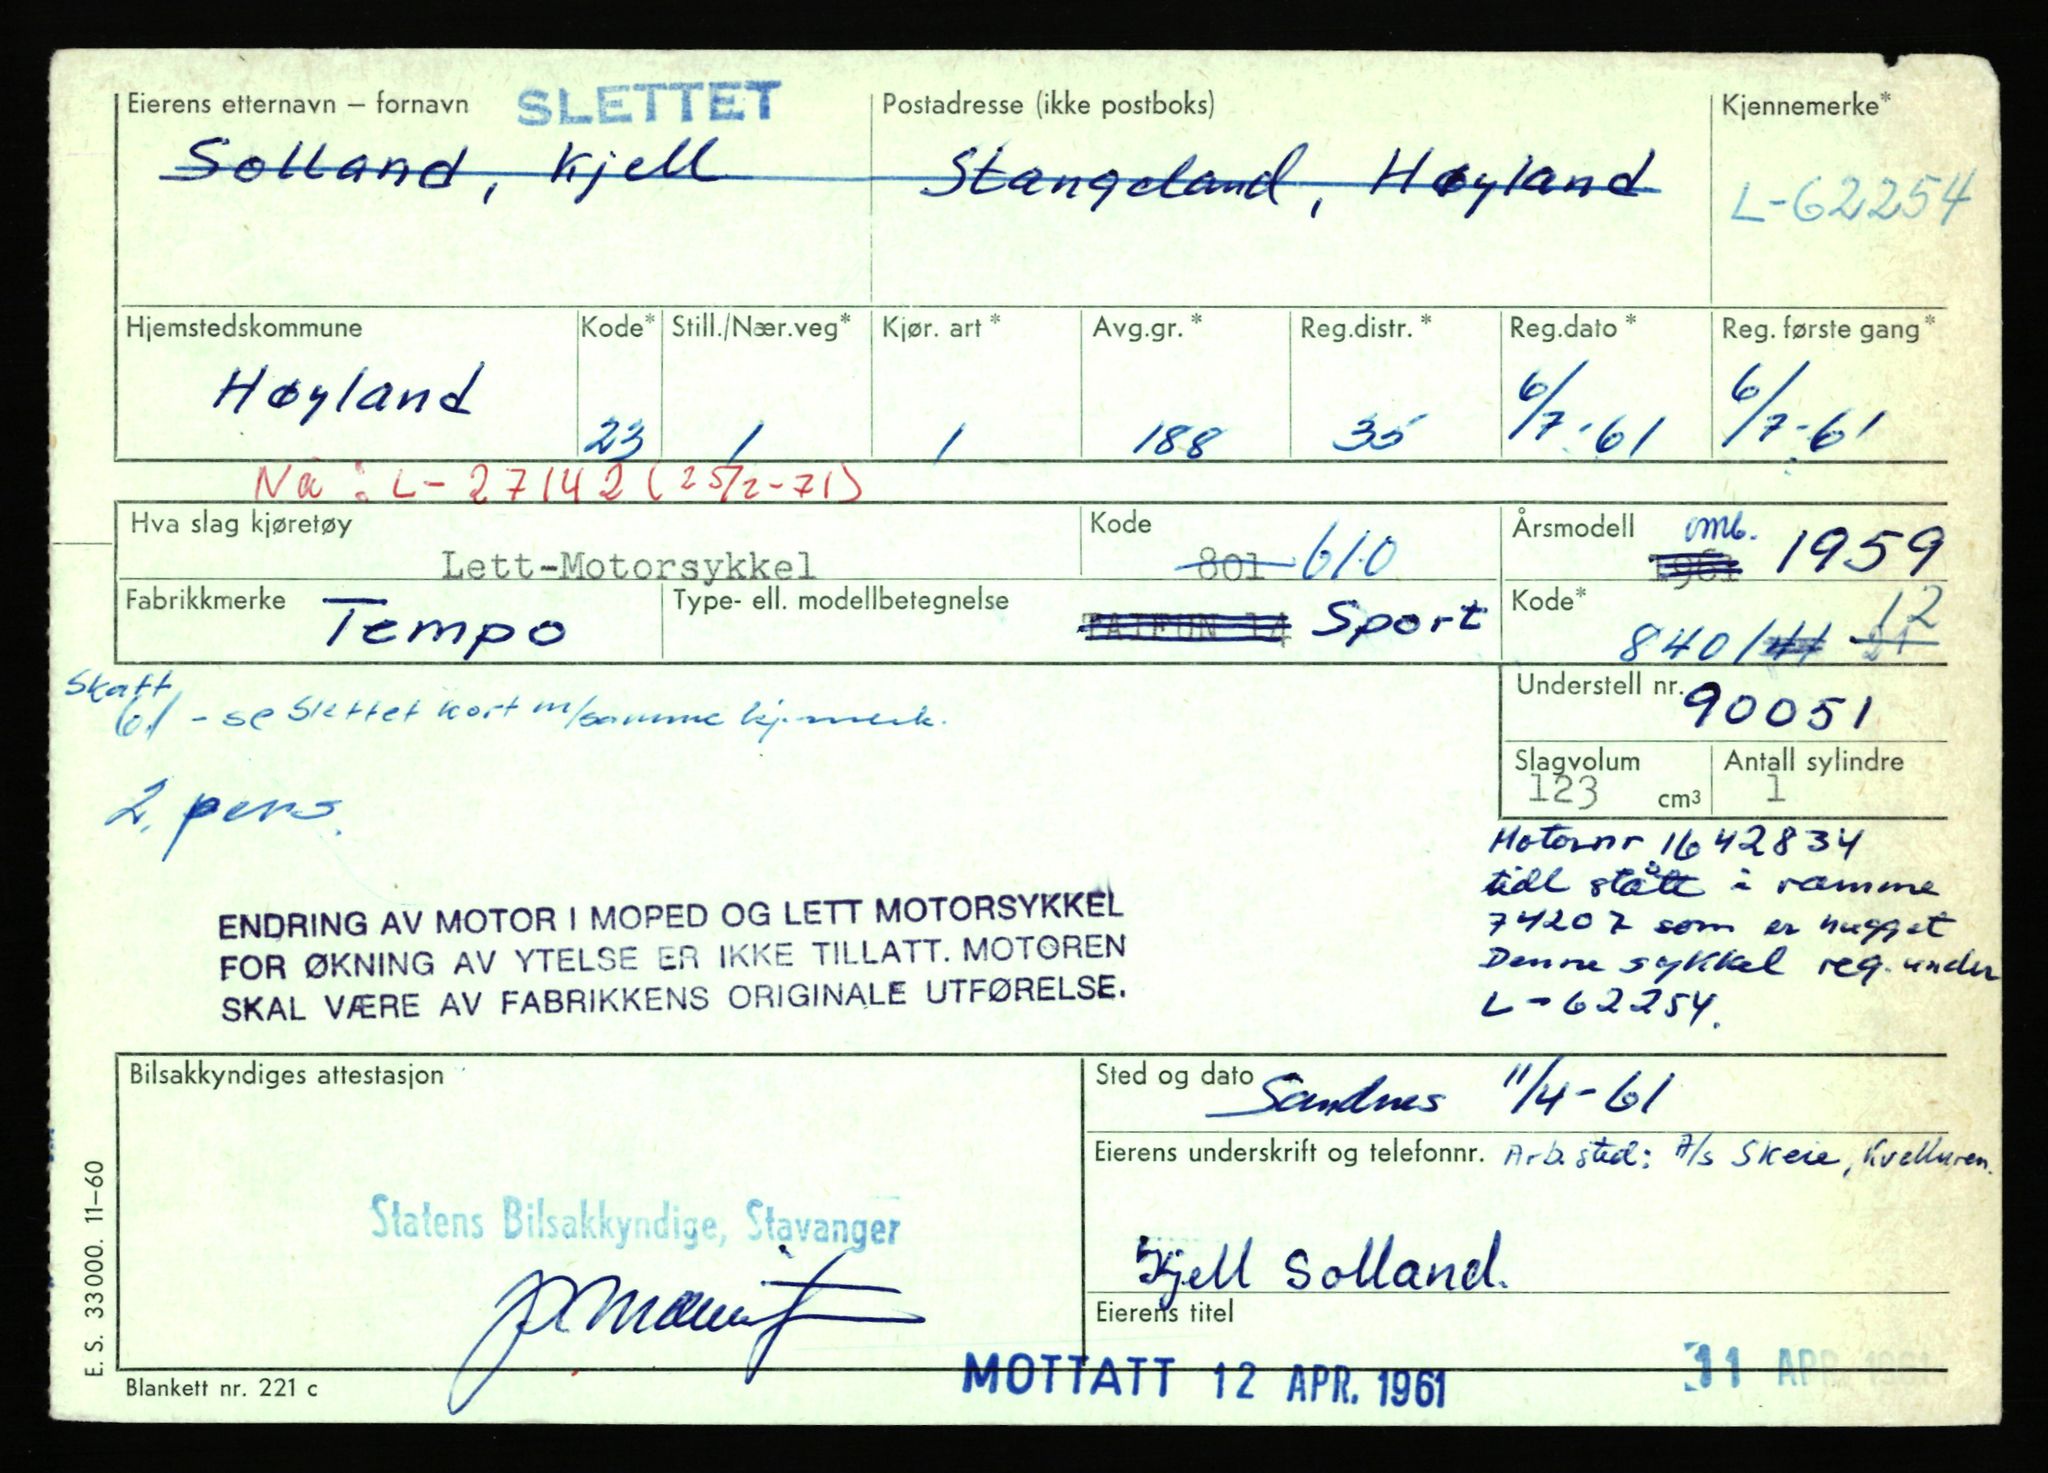 Eierens etternavn – fornavn SLETTET Postadresse (ikke postboks) Kjennemerke*
Solland, Kjell Stangeland, Høyland L-62254
Hjemstedskommune Kode* Still./Nær.veg* Kjør. art* Avg.gr.* Reg.distr.* Reg.dato* Reg. første gang*
Høyland 23 1 1 188 35 6/7-61 6/7-61
Nå: L-27142 (25/2-71)
Hva slag kjøretøy Kode Årsmodell omb.
Lett-Motorsykkel 801 610 1961 1959
Fabrikkmerke Tempo Type- ell. modellbetegnelse TAIFUN Sport Kode* 8401 12
Skatt Understell nr. 90051
61 - se slettet kort m/samme kj.merk.
Slagvolum Antall sylindre
123 cm³ 1
2. pers.
Motornr 1642834
tidl stått i ramme
74207 som er hugget
Denne sykkel reg. under
L-62254.
ENDRING AV MOTOR I MOPED OG LETT MOTORSYKKEL
FOR ØKNING AV YTELSE ER IKKE TILLATT. MOTOREN
SKAL VÆRE AV FABRIKKENS ORIGINALE UTFØRELSE.
Bilsakkyndiges attestasjon Sted og dato Sandnes 11/4-61
Eierens underskrift og telefonnr. Arb.sted: A/s Skeie,
Statens Bilsakkyndige, Stavanger
Kjell Solland.
Eierens titel
MOTTATT 12 APR. 1961 11 APR. 1961
Blankett nr. 221 c
E. S. 33000. 11–60